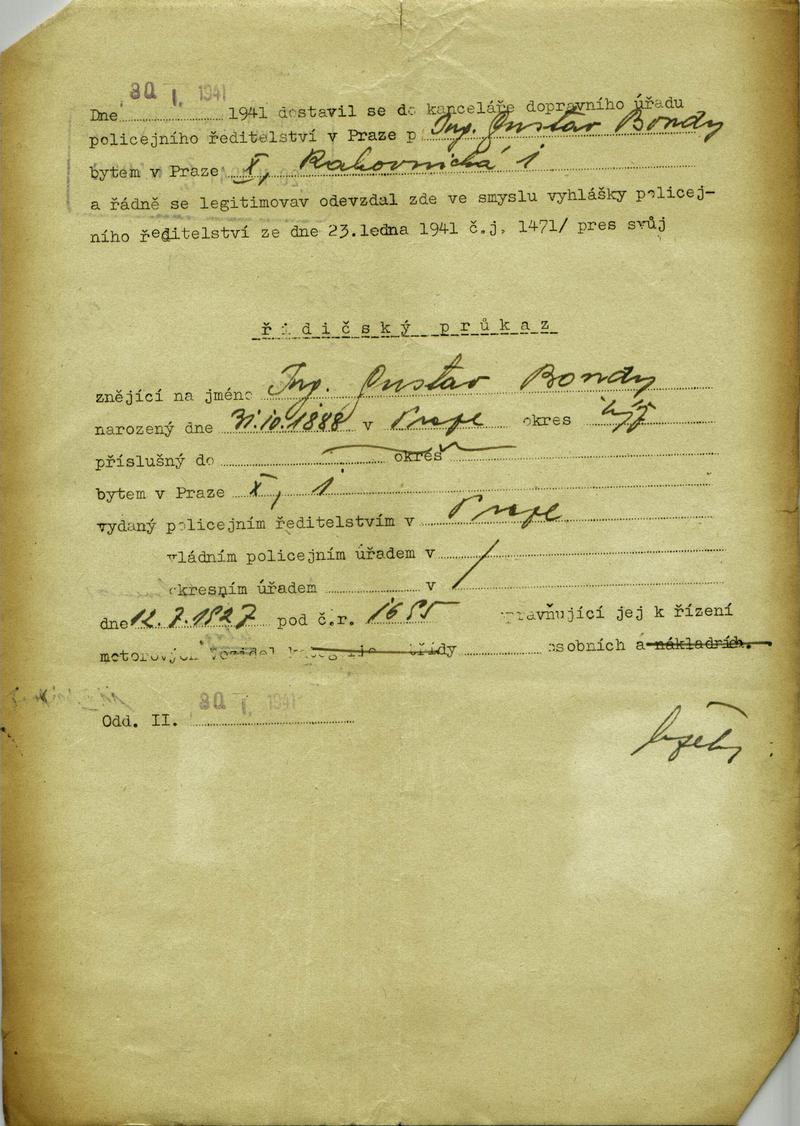 30 I. 1941
Dne ........ 1941 dostavil se do kanceláře dopravního úřadu
policejního ředitelství v Praze p Ing. Gustav Bondy
bytem v Praze X, Rakovnická 1
a řádně se legitimovav odevzdal zde ve smyslu vyhlášky policej-
ního ředitelství ze dne 23.ledna 1941 č.j. 1471/ pres svůj
řidičský průkaz
znějící na jméno Ing. Gustav Bondy
narozený dne 31.10.1888 v Praze okres
příslušný do ........ okres
bytem v Praze X, 1
vydaný policejním ředitelstvím v Praze
vládním policejním úřadem v
okresním úřadem ........ v /
dne 12.7.1927 pod č.r. 1655 opravňující jej k řízení
motorových vozidel kategorie třídy ........ osobních a nákladních.
30 I. 1941
Odd. II. ........